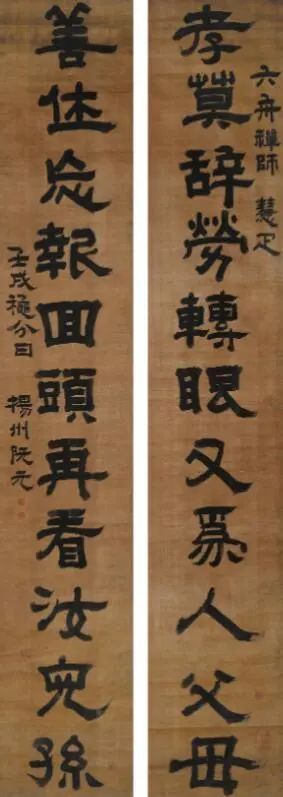 六舟禪師 慧疋
孝莫辞勞轉眼又爲人父母
善休忘報囬頭再看汝兒孫
壬戌穐分日 揚州阮元